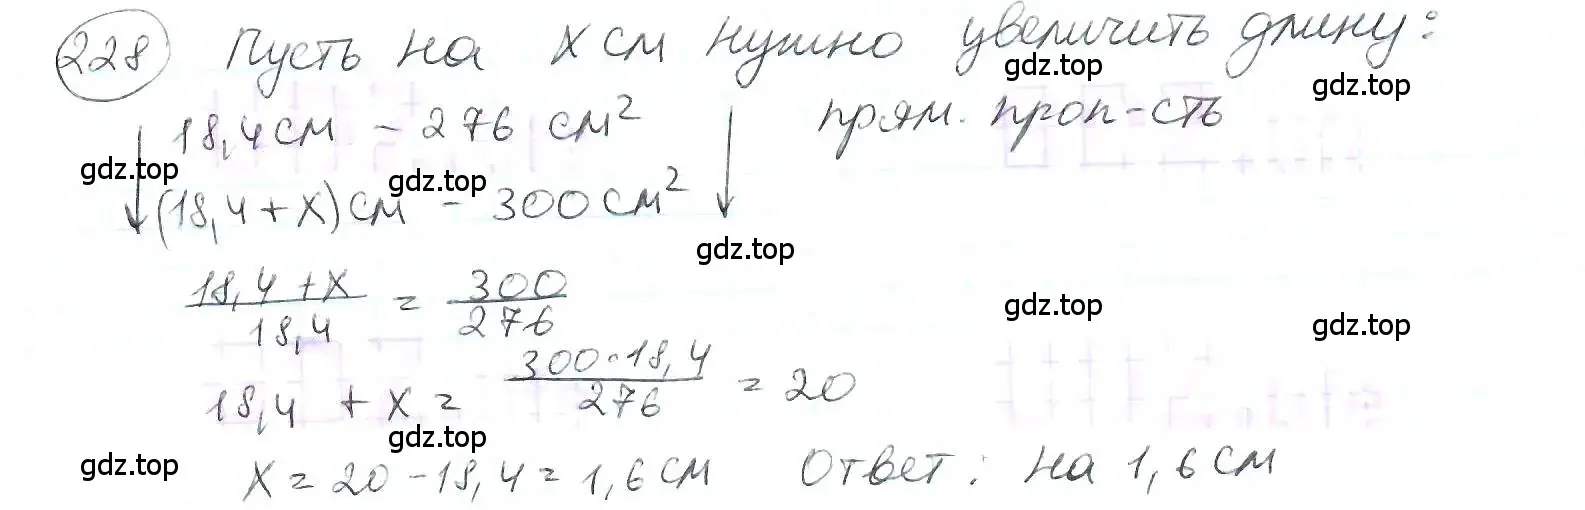 228 Пусть на x см нужно увеличить длину:
gdz.top gdz.top
18,4 см – 276 см² прям. проп-сть
gdz.top gdz.top
(18,4 + x) см – 300 см²
gdz.top
18,4 + x / 18,4 = 300 / 276
gdz.top gdz.top
18,4 + x = 300 · 18,4 / 276 = 20
gdz.top gdz.top
x = 20 – 18,4 = 1,6 см Ответ: на 1,6 см